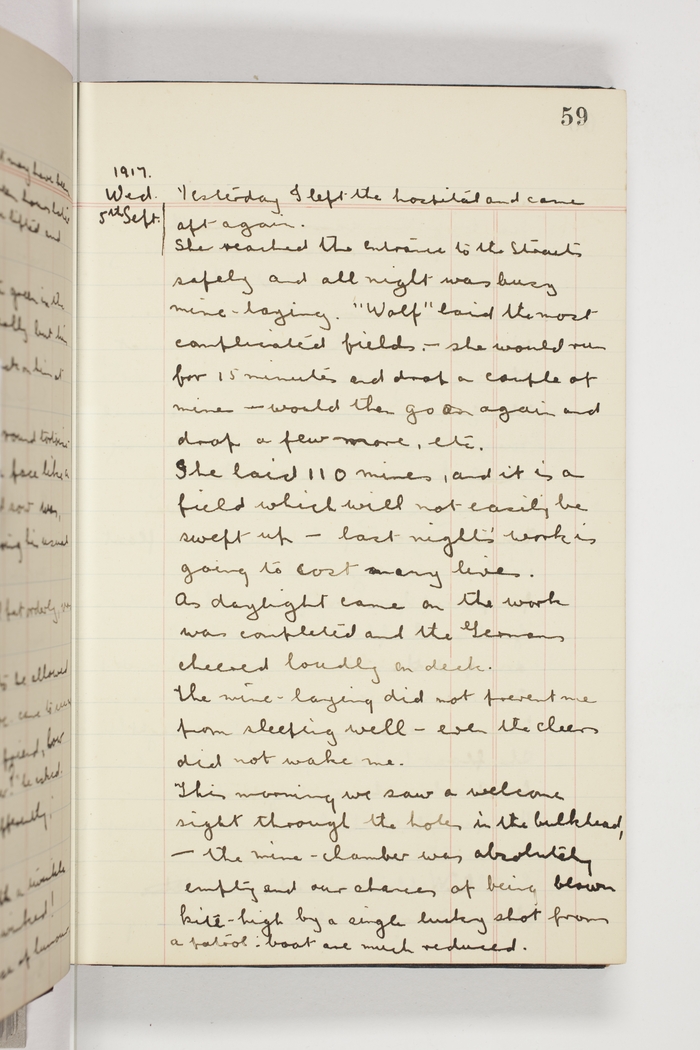 59
1917.
Wed. Yesterday I left the hospital and came
5th Sept. aft again.
She reached the entrance to the Straits
safely and all night was busy
mine-laying. "Wolf" laid the most
complicated fields. - she would run
for 15 minutes and drop a couple of
mines - would then go on again and
drop a few more, etc.
She laid 110 mines, and it is a
field which will not easily be
swept up - last night's work is
going to cost many lives.
As daylight came on the work
was completed and the Germans
cheered loudly on deck.
The mine-laying did not prevent me
from sleeping well - even the cheers
did not wake me.
This morning we saw a welcome
sight through the holes in the bulkhead,
- the mine-chamber was absolutely
empty and our chances of being blown
kite-high by a single lucky shot from
a patrol-boat are much reduced.
may have been
lifted and
green in the
but his
on him at
round
face like a
his usual
fat orderly, was
to be allowed
friend, how
he asked.
a twinkle
of humour